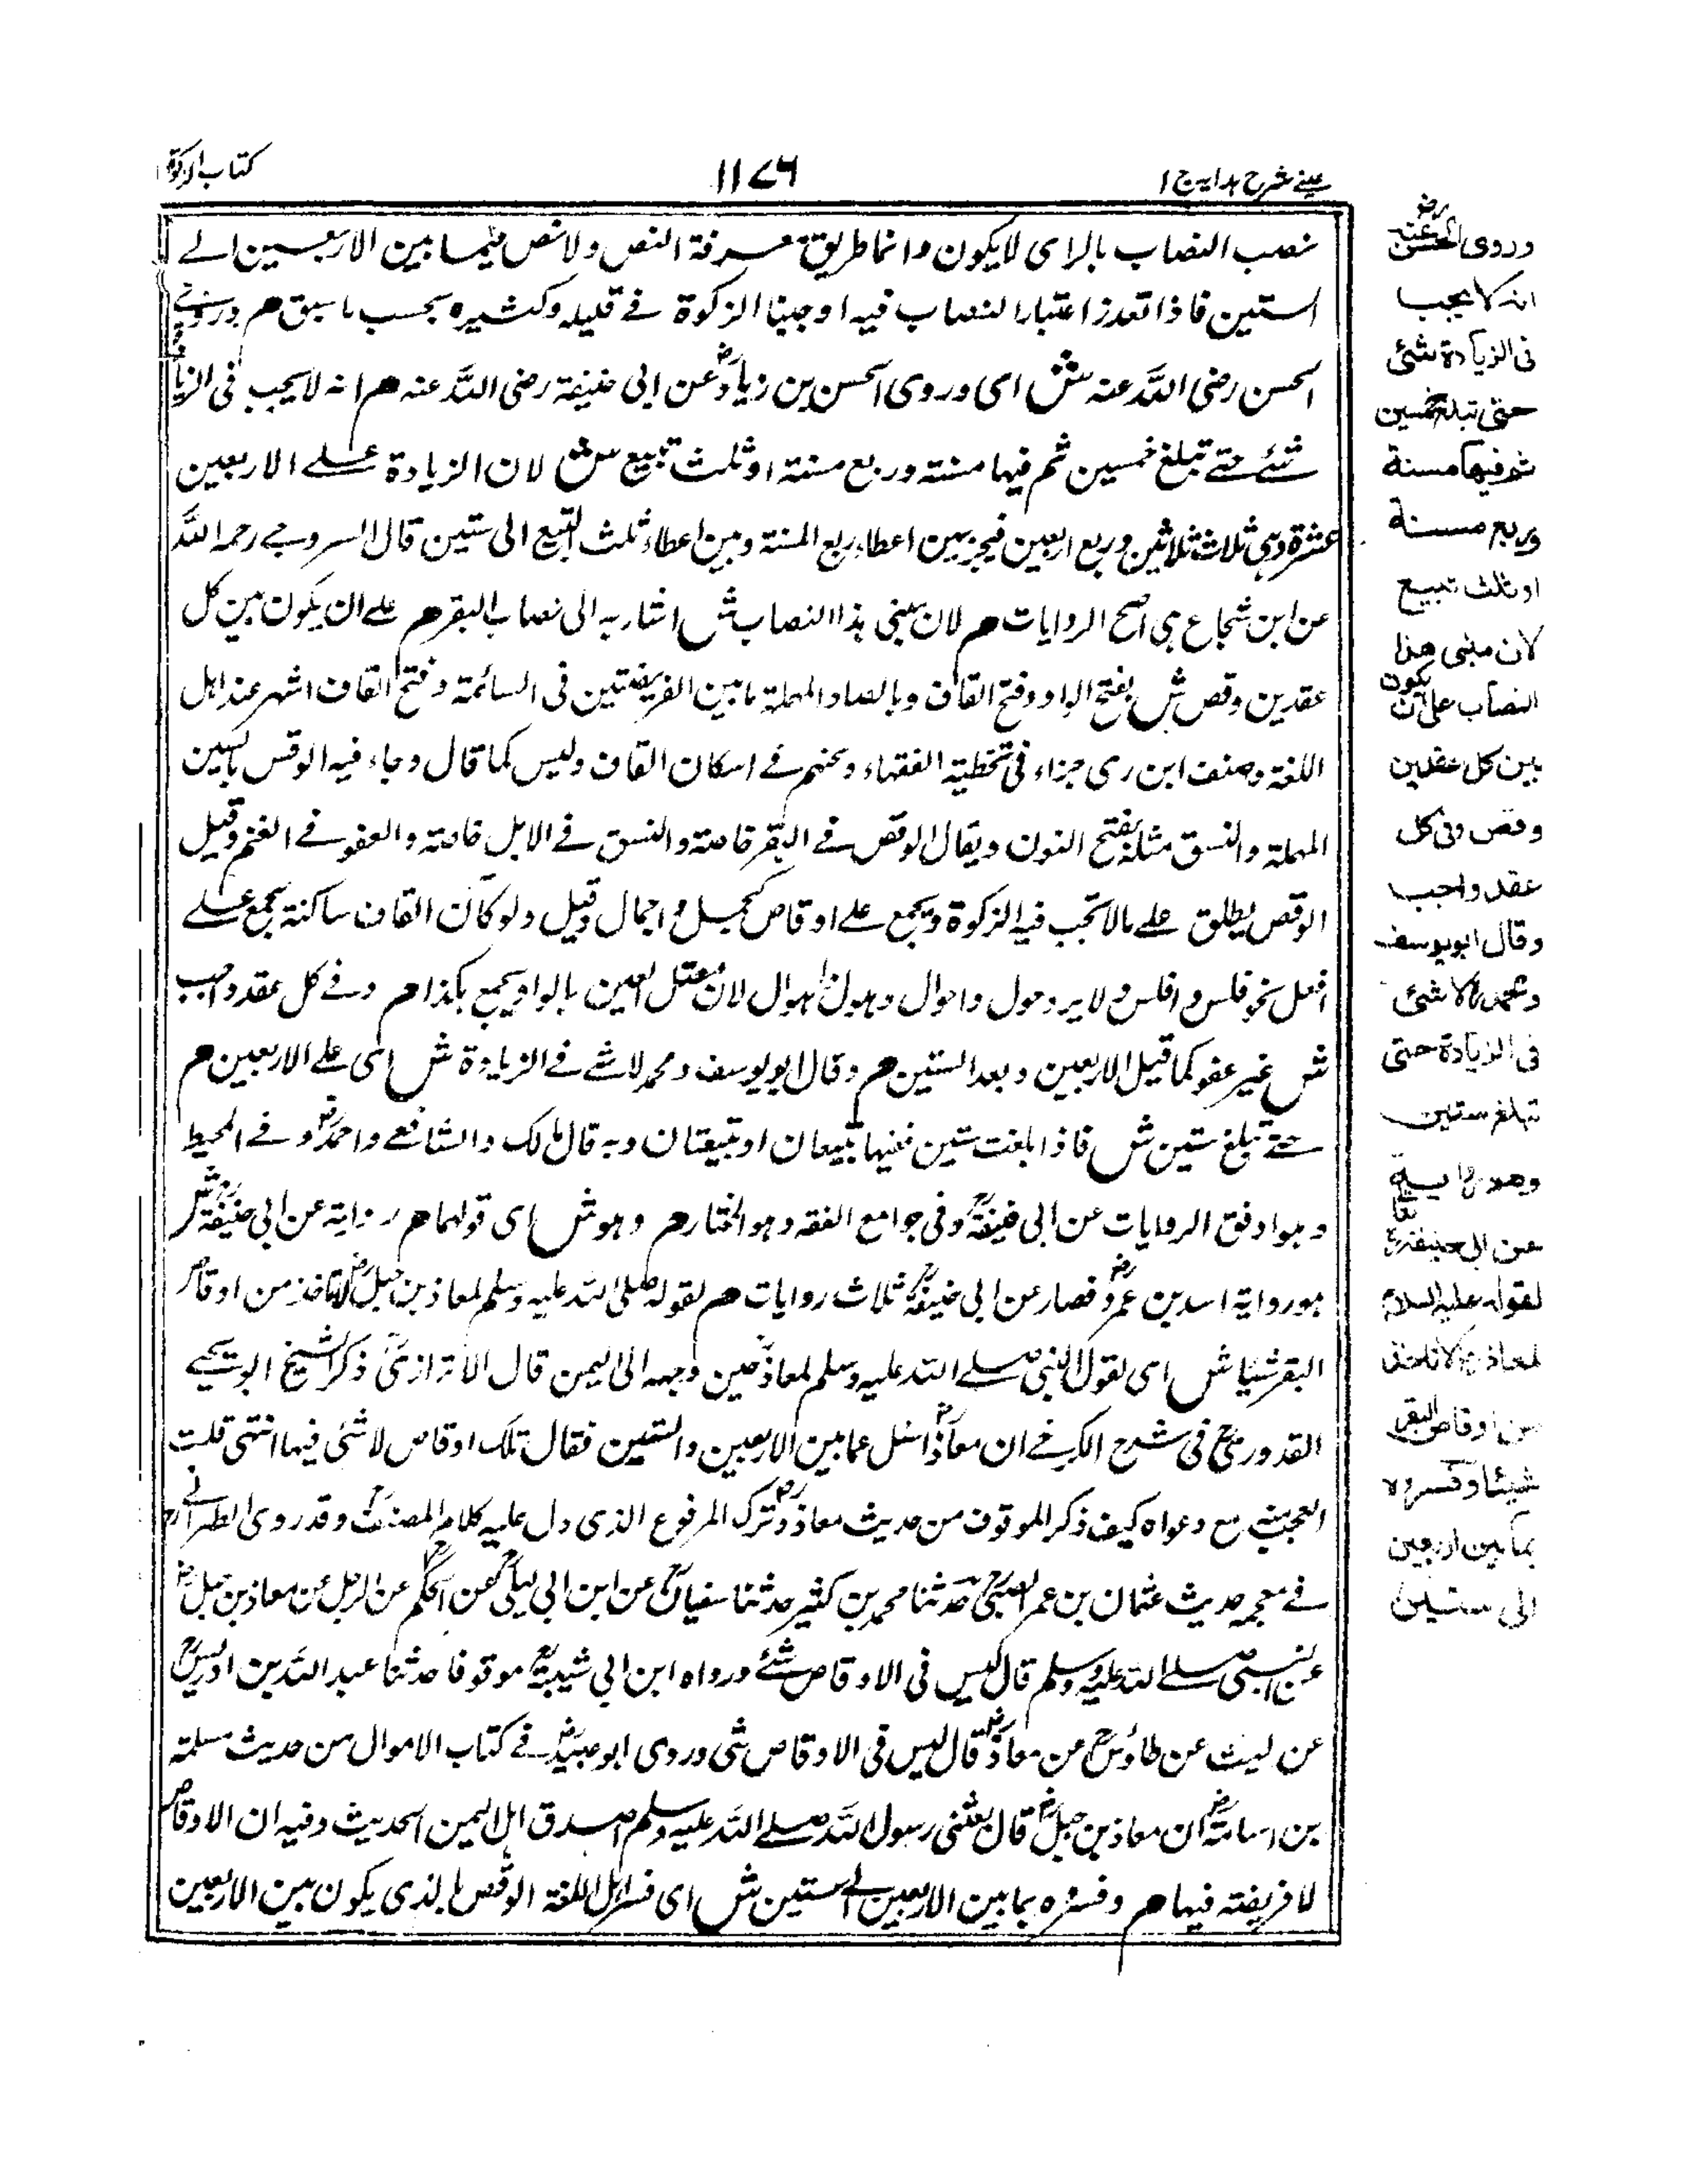 عينى شرح هدايه ج ١
١١٧٦
كتاب الزكوة
نصب النصاب بالراى لايكون وانما طريق معرفة النص ولا نص فيما بين الاربعين الے
الستين فاذا تعذر اعتبار النصاب فيه اوجبنا الزكوة فے قليله وكثيره بحسب ما سبق م وروى
الحسن رضى اللّٰه عنه ش اى وروى الحسن بن زياد عن ابى حنيفة رضى اللّٰه عنه م انه لا يجب فى الزيادة
شئے حتے تبلغ خمسين ثم فيها مسنته وربع مسنته او ثلث تبيع ش لان الزيادة علے الاربعين
عشرة وهى ثلاث ثلاثين وربع اربعين فيخير بين اعطاء ربع المسنة وبين اعطاء ثلث التبيع الى ستين قال السروجے رحمه اللّٰه
عن ابن شجاع هى اصح الروايات م لان مبنى هذا النصاب ش اشار به الى نصاب البقر م علے ان يكون بين كل
عقدين وقص ش بفتح الواو وفتح القاف وبالصاد المهملة ما بين الفريضتين فى السائمة وفتح القاف اشهر عند اهل
اللغة وصنف ابن برى جزاء فى تخطية الفقهاء ولحنهم فے اسكان القاف وليس كما قال وجاء فيه الوقس بالسين
المهملة والنسق مثله بفتح النون ويقال الوقص فے البقر خاصة والنسق فے الابل خاصة والعفو فے الغنم وقيل
الوقص يطلق علے مالا تجب فيه الزكوة ويجمع علے اوقاص كجمل واجمال وقيل ولو كان القاف ساكنة يجمع علے
افعل نحو فلس وافلس ولا يرد حول واحوال وهول واهوال لان معتل العين بالواو يجمع هكذا م وفے كل عقد واجب
ش غير عفو كما قبل الاربعين وبعد الستين م وقال ابويوسف ومحمد لا شے فے الزيادة ش اى علے الاربعين م
حتے تبلغ ستين ش فاذا بلغت ستين ففيها تبيعان او تبيعتان وبه قال مالك والشافعے واحمد وفے المحيط
وهو اوفق الروايات عن ابى حنيفة وفى جوامع الفقه وهو المختار م وهو ش اى قولهما م رواية عن ابى حنيفة ش
هو رواية اسد بن عمرو فصار عن ابى حنيفة ثلاث روايات م لقوله صلى اللّٰه عليه وسلم لمعاذ بن جبل لا تاخذ من اوقاص
البقر شيئا ش اى لقول النبى صلے اللّٰه عليه وسلم لمعاذ حين وجهه الى اليمن قال الاترازى ذكر الشيخ ابو يحيے
القدورى فى شرح الكرخے ان معاذا سئل عما بين الاربعين والستين فقال تلك اوقاص لا شئى فيها انتهى قلت
العجب منه مع دعواه كيف ذكر الموقوف من حديث معاذ وترك المرفوع الذى دل عليه كلام المصنف وقد روى الطبرانے
فے معجمه حديث عثمان بن عمر الضبى حدثنا محمد بن كثير حدثنا سفيان عن ابن ابى ليلى عن الحكم عن الرجل عن معاذ بن جبل
عن النبى صلے اللّٰه عليه وسلم قال ليس فى الاوقاص شئے ورواه ابن ابى شيبة موقوفا حدثنا عبد اللّٰه بن ادريس
عن ليث عن طاؤس عن معاذ قال ليس فى الاوقاص شى وروى ابو عبيد فے كتاب الاموال من حديث سلمة
بن اسامة ان معاذ بن جبل قال بعثنى رسول اللّٰه صلے اللّٰه عليه وسلم اصدق اهل اليمن الحديث وفيه ان الاوقاص
لا فريضة فيها م وفسروه بما بين الاربعين الے ستين ش اى فسر اهل اللغة الوقص بالذى يكون بين الاربعين
وروى الحسن عنه رض
انه لا يجب
فى الزيادة شئ
حتى تبلغ خمسين
ثم فيها مسنة
وربع مسنة
او ثلث تبيع
لان مبنى هذا
النصاب على ان يكون
بين كل عقدين
وقص وفى كل
عقد واجب
وقال ابو يوسف
ومحمد لا شئ
فى الزيادة حتى
تبلغ ستين
وهو رواية
عن ابى حنيفة
لقوله عليه السلام
لمعاذ لا تاخذ
من اوقاص البقر
شيئا وفسروه
بما بين اربعين
الى ستين